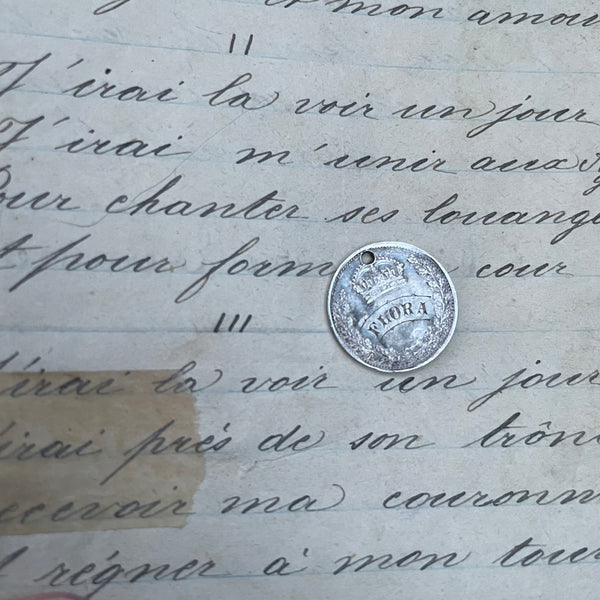 et mon amou
II
J'irai la voir un jour
J'irai m'unir aux
Pour chanter ses louange
Et pour form cour
FLORA
III
J'irai la voir un jour
J'irai près de son trône
Recevoir ma couronn
Et régner à mon tour